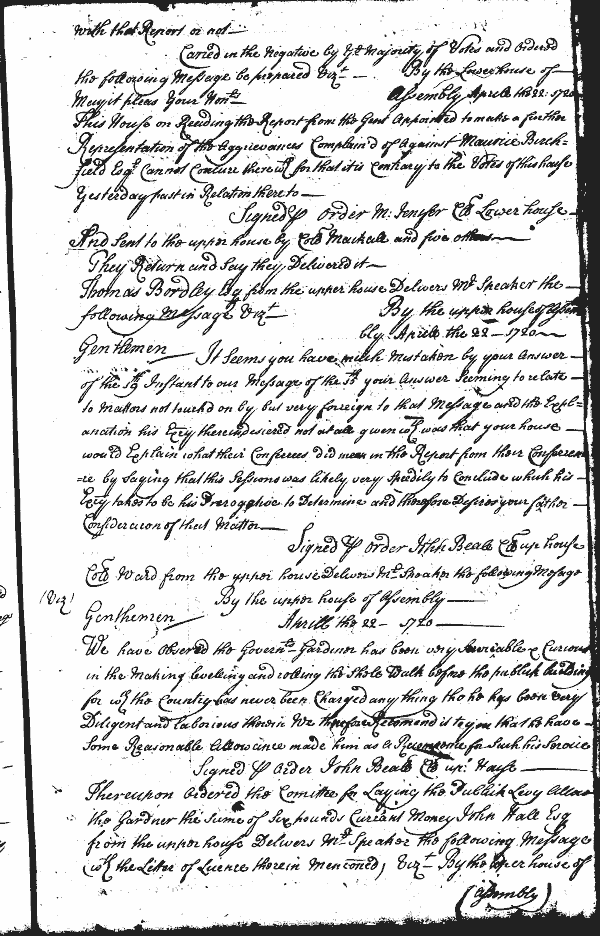 with that Report or not
Caried in the Negative by ye Majority of Votes and Ordered
the following Message be prepared Vizt By the Lower house of
May it pleas Your Honrs Assembly Aprill the 22 1720
This House on Reading the Report from the Gent Appointed to make a further
Representation of the Aggrievances Complain'd of Against Maurice Birch=
field Esqr Cannot Concure therewth for that it is Contrary to the Votes of this house
Yesterday past in Relation thereto
Signed p order M: Jenifer Cl Lower house
And Sent to the upper house by Coll Mackall and five others
They Return and Say they Delivered it
Thomas Bordley Esq from the upper house Delivers Mr Speaker the
following Message Vizt By the upper house of Assem
bly Aprill the 22 1720
Gentlemen It Seems you have much mistaken by your Answer
of the 19 Instant to our Message of the your Answer Seeming to relate
to Matters not touch'd on by, but very foreign to that Message and the Expl=
anation his Excy therein desired not at all given wch was that your house
would Explain what their Conferees did mean in the Report from their Conferen
=ce by Saying that this Sessions was likely very Speedily to Conclude which his
Excy takes to be his Prerogative to Determine and therefore Desires your further
Consideracon of that Matter
Signed p order Jno Beale Cl up house
Coll Ward from the upper house Delivers Mr Speaker the following Message
(Viz) By the upper house of Assembly
Gentlemen Aprill the 22 1720
We have Observed the Governrs Gardner has been very Serviceable & Curious
in the Making levelling and rolling the Whole Walk before the publick building
for wch the County has never been Charged any thing tho he has been very
Diligent and laborious therein We therefore Recomend it to you that he have
Some Reasonable Allowance made him as a for Such his Service
Signed p Order John Beale Cl up: House
Thereupon Ordered the Comittee for Laying the Publick Levy Allow
the Gardner the Sume of Six pounds Current Money John Hall Esq
from the upper house Delivers Mr Speaker the following Message
wth the Letter of Lycence therein Menconed) Vizt By the upper house of
(Assembly)